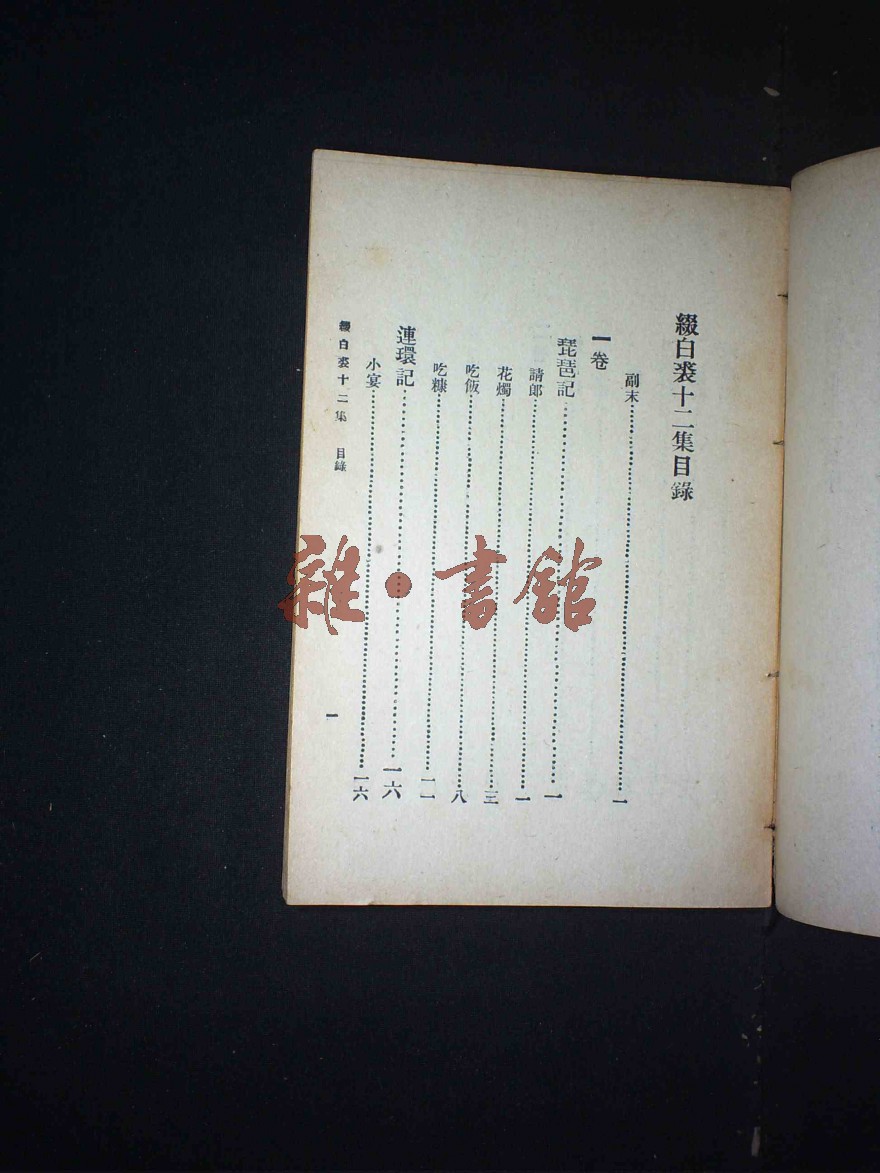 綴白裘十二集目錄
副末⋯⋯一
一卷
琵琶記⋯⋯一
請郎⋯⋯一
花燭⋯⋯三
吃飯⋯⋯八
吃糠⋯⋯一一
連環記⋯⋯一六
小宴⋯⋯一六
綴白裘十二集 目錄
一
雜·書館